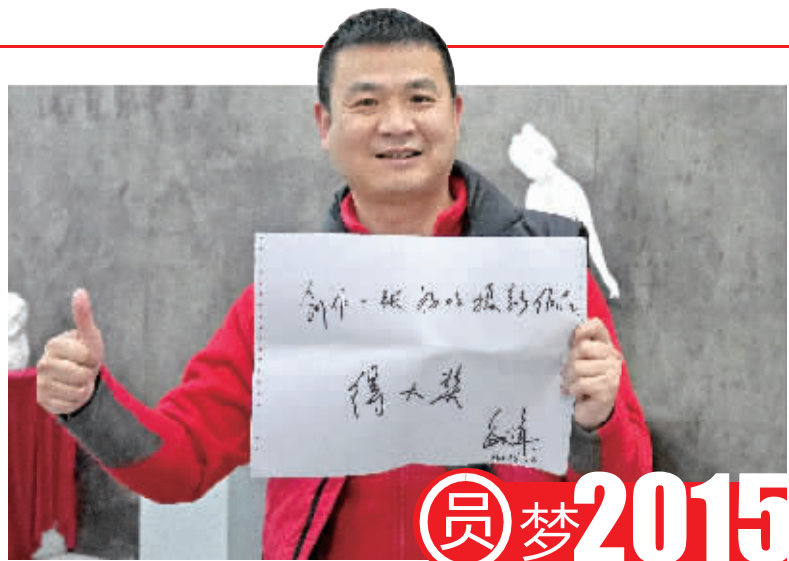 创作一张好的摄影作品
得大奖
圆梦2015